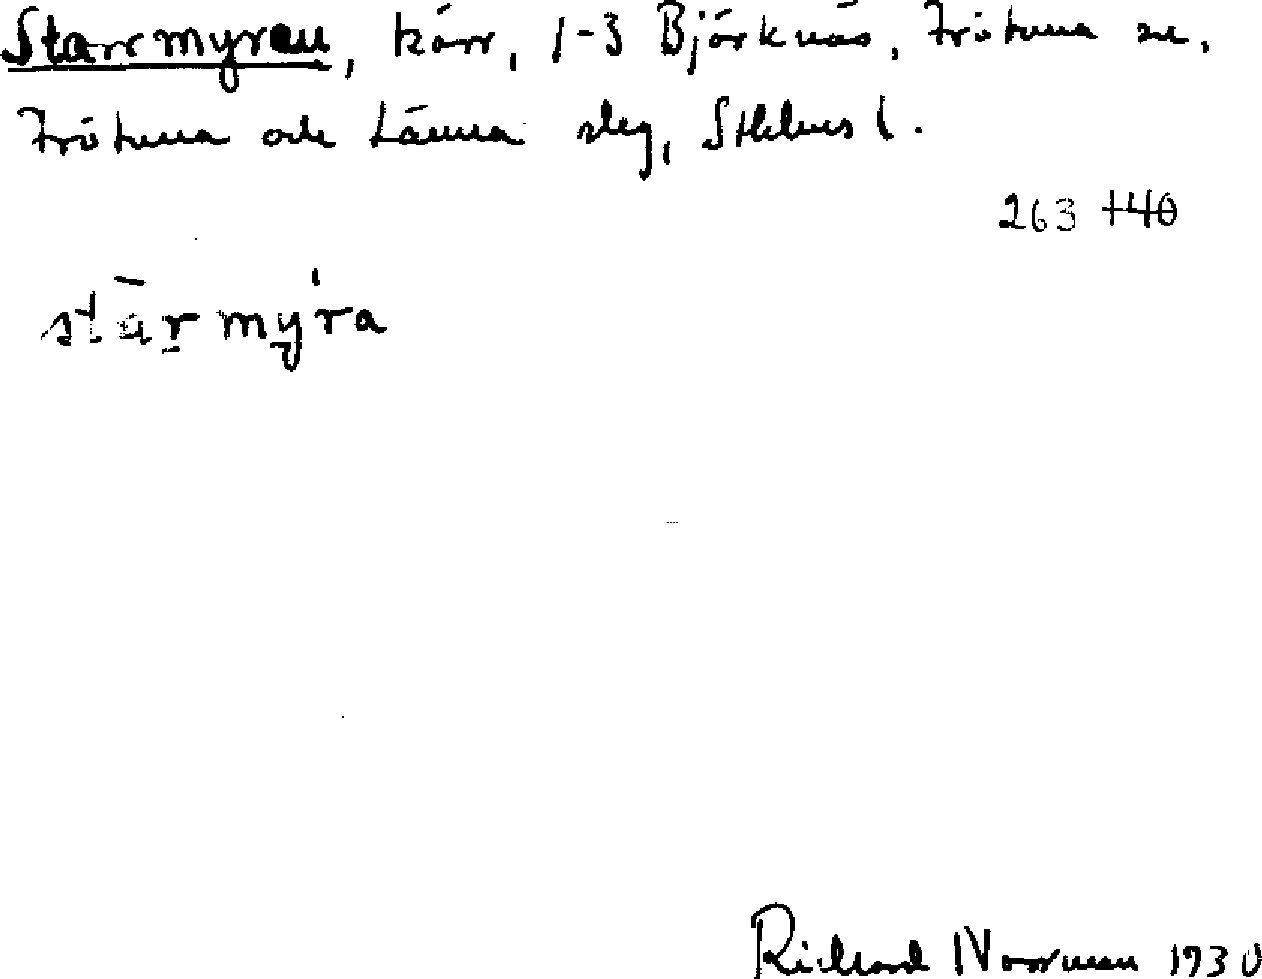 Starrmyren, kärr, 1-3 Björknäs, Frötuna sn,
Frötuna och Länna slag, Sthlms l.
263 440
stārmy̍ra
Richard Norrman 1930